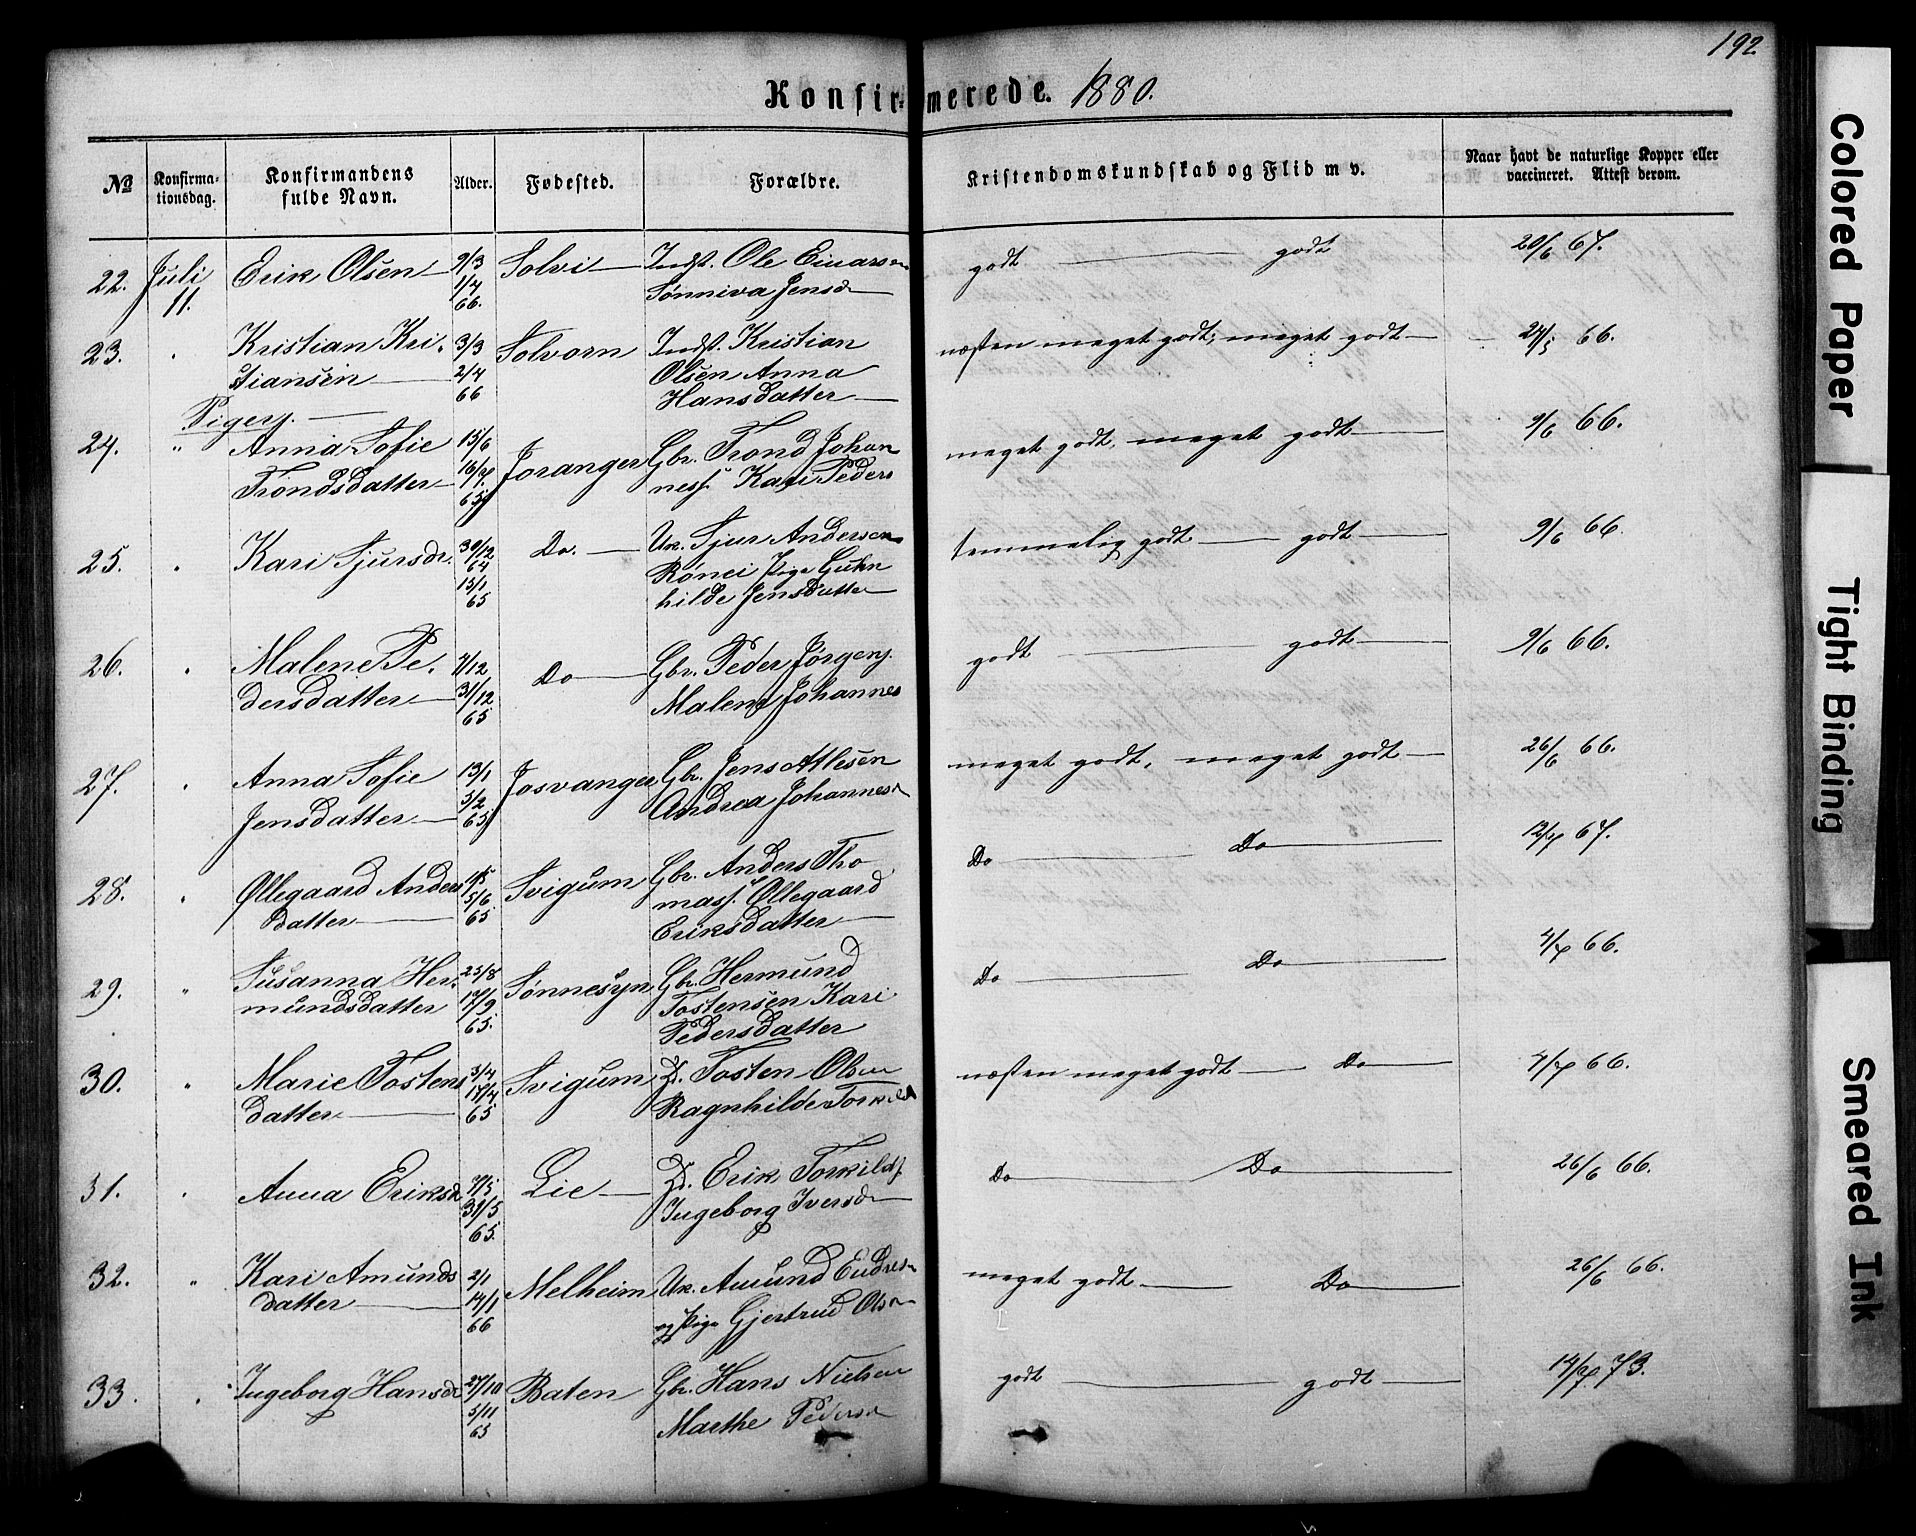 192
Konfirmerede. 1880.
№ Konfirmationsdag. Konfirmandens fulde Navn. Alder. Fødested. Forældre. Kristendomskundskab og Flid m v. Naar havt de naturlige Kopper eller vaccineret. Attest derom.
22. Juli 11. Erik Olsen 9/3 1/4 66. Solvi Indst. Ole Einarsen Sønniva Jensd godt godt 20/6 67.
23. " Kristian Kristiansen 3/3 2/4 66 Solvorn Indst. Kristian Olsen Anna Hansdatter næsten meget godt; meget godt 24/5 66.
Piger.
24. " Anna Sofie Trondsdatter 15/6 16/7. 65 Joranger Gbr. Trond Johanness. Kari Peders meget godt, meget godt 9/6 66.
25. " Kari Sjursdr. 30/12 64 15/1 65 Do. Uk. Sjur Andersen Rønei Pige Guhnhilde Jensdatter temmelig godt godt 9/6 66.
26. " Malene Pedersdatter 7/12 31/12 65 Do Gbr. Peder Jørgens. Malene Johannes godt godt 9/6 66.
27. " Anna Sofie Jensdatter 13/1 5/2 65 Josvanger Gbr. Jens Atlesen Andrea Johannesd meget godt, meget godt 26/6 66.
28. " Øllegaard Andersdatter 5/6. 65 Svigum Gbr. Anders Thomass. Øllegaard Eriksdatter Do Do 12/7 67.
29. " Susanna Hermundsdatter 23/8 17/9 65. Sønnesyn Gbr. Hermund Tostensen Kari Pedersdatter Do Do 4/7 66.
30. " Marie Tostensdatter 3/4 17/4 65 Svigum Tosten Olsen Ragnhilde Torkild næsten meget godt Do 4/7 66.
31. " Anna Eriksd 7/5 31/5 65. Lie Erik Torkilds. Ingeborg Iversd Do Do 26/6 66.
32. " Kari Amundsdatter 2/1 14/1 66 Melheim Uk. Amund Endresen og Pige Gjertrud Olsen meget godt Do 26/6 66.
33. " Ingeborg Hansd 27/10 5/11 65 Baten Gbr. Hans Nielsen Marthe Pedersd godt godt 14/7. 73.
Colored Paper
Tight Binding
Smeared Ink